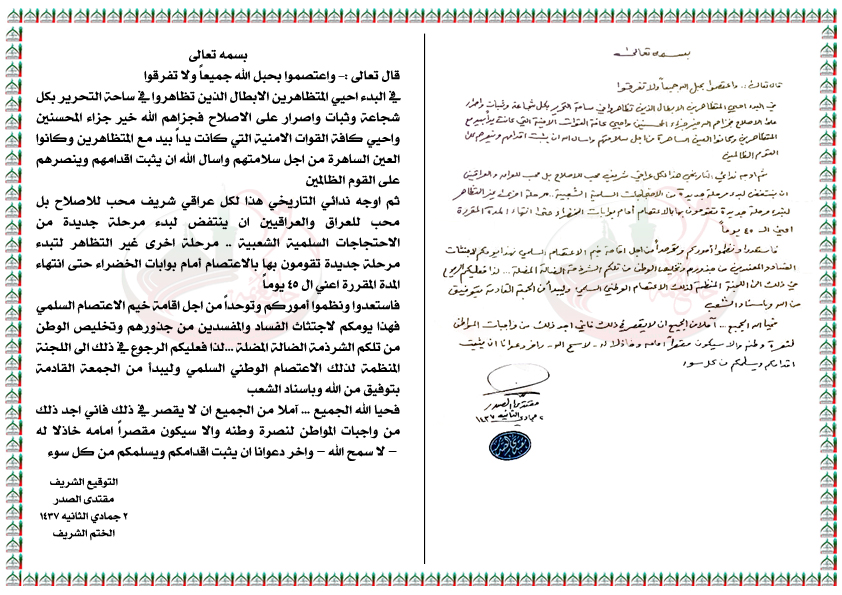 بسمه تعالى
قال تعالى :- واعتصموا بحبل الله جميعاً ولا تفرقوا
في البدء احيي المتظاهرين الابطال الذين تظاهروا في ساحة التحرير بكل شجاعة وثبات واصرار
على الاصلاح فجزاهم الله خير جزاء المحسنين واحيي كافة القوات الامنية التي كانت يداً بيد مع
المتظاهرين وكانوا العين الساهرة من اجل سلامتهم واسال الله ان يثبت اقدامهم وينصرهم على
القوم الظالمين
ثم اوجه ندائي التاريخي هذا لكل عراقي شريف محب للاصلاح بل محب للعراق والعراقيين
ان ينتفض لبدء مرحلة جديدة من الاحتجاجات السلمية الشعبية .. مرحلة اخرى غير التظاهر
لتبدء مرحلة جديدة تقومون بها بالاعتصام أمام بوابات الخضراء حتى انتهاء المدة المقررة
اعني الـ ٤٥ يوماً
فاستعدوا ونظموا أموركم وتوحداً من اجل اقامة خيم الاعتصام السلمي فهذا يومكم لاجتثاث
الفساد والمفسدين من جذورهم وتخليص الوطن من تلكم الشرذمة الضالة المضلة ... لذا فعليكم الرجوع
في ذلك الى اللجنة المنظمة لذلك الاعتصام الوطني السلمي وليبدأ من الجمعة القادمة بتوفيق
من الله وباسناد الشعب
فحيا الله الجميع ... آملا من الجميع ان لا يقصر في ذلك فاني اجد ذلك من واجبات المواطن
لنصرة وطنه والا سيكون مقصراً امامه وخاذلا له - لا سمح الله - واخر دعوانا ان يثبت
اقدامكم ويسلمكم من كل سوء
مقتدى الصدر
٢ جمادي الثانيه ١٤٣٧
بسمه تعالى
قال تعالى :- واعتصموا بحبل الله جميعاً ولا تفرقوا
في البدء احيي المتظاهرين الابطال الذين تظاهروا في ساحة التحرير بكل
شجاعة وثبات واصرار على الاصلاح فجزاهم الله خير جزاء المحسنين
واحيي كافة القوات الامنية التي كانت يداً بيد مع المتظاهرين وكانوا
العين الساهرة من اجل سلامتهم واسال الله ان يثبت اقدامهم وينصرهم
على القوم الظالمين
ثم اوجه ندائي التاريخي هذا لكل عراقي شريف محب للاصلاح بل
محب للعراق والعراقيين ان ينتفض لبدء مرحلة جديدة من
الاحتجاجات السلمية الشعبية .. مرحلة اخرى غير التظاهر لتبدء
مرحلة جديدة تقومون بها بالاعتصام أمام بوابات الخضراء حتى انتهاء
المدة المقررة اعني ال ٤٥ يوماً
فاستعدوا ونظموا أموركم وتوحداً من اجل اقامة خيم الاعتصام السلمي
فهذا يومكم لاجتثاث الفساد والمفسدين من جذورهم وتخليص الوطن
من تلكم الشرذمة الضالة المضلة ...لذا فعليكم الرجوع في ذلك الى اللجنة
المنظمة لذلك الاعتصام الوطني السلمي وليبدأ من الجمعة القادمة
بتوفيق من الله وباسناد الشعب
فحيا الله الجميع ... آملا من الجميع ان لا يقصر في ذلك فاني اجد ذلك
من واجبات المواطن لنصرة وطنه والا سيكون مقصراً امامه خاذلا له
– لا سمح الله – واخر دعوانا ان يثبت اقدامكم ويسلمكم من كل سوء
التوقيع الشريف
مقتدى الصدر
٢ جمادي الثانيه ١٤٣٧
الختم الشريف